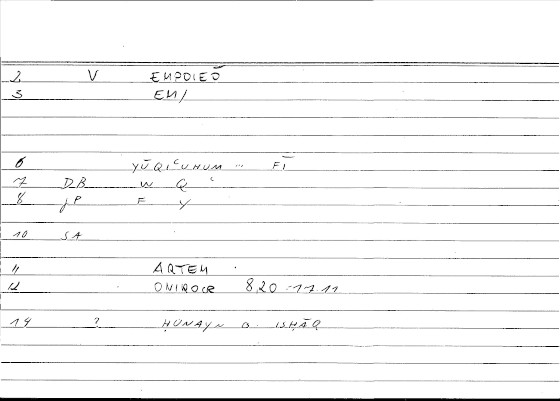 2 V EMPOIEŌ
3 EN/
6 YŪQIʿUHUM ... FĪ
7 DB W Q ʿ
8 JP F Y
10 SA
11 ARTEM .
12 ONIROCR 8,20 - 17.11
14 ? ḤUNAYN B. ISḤĀQ